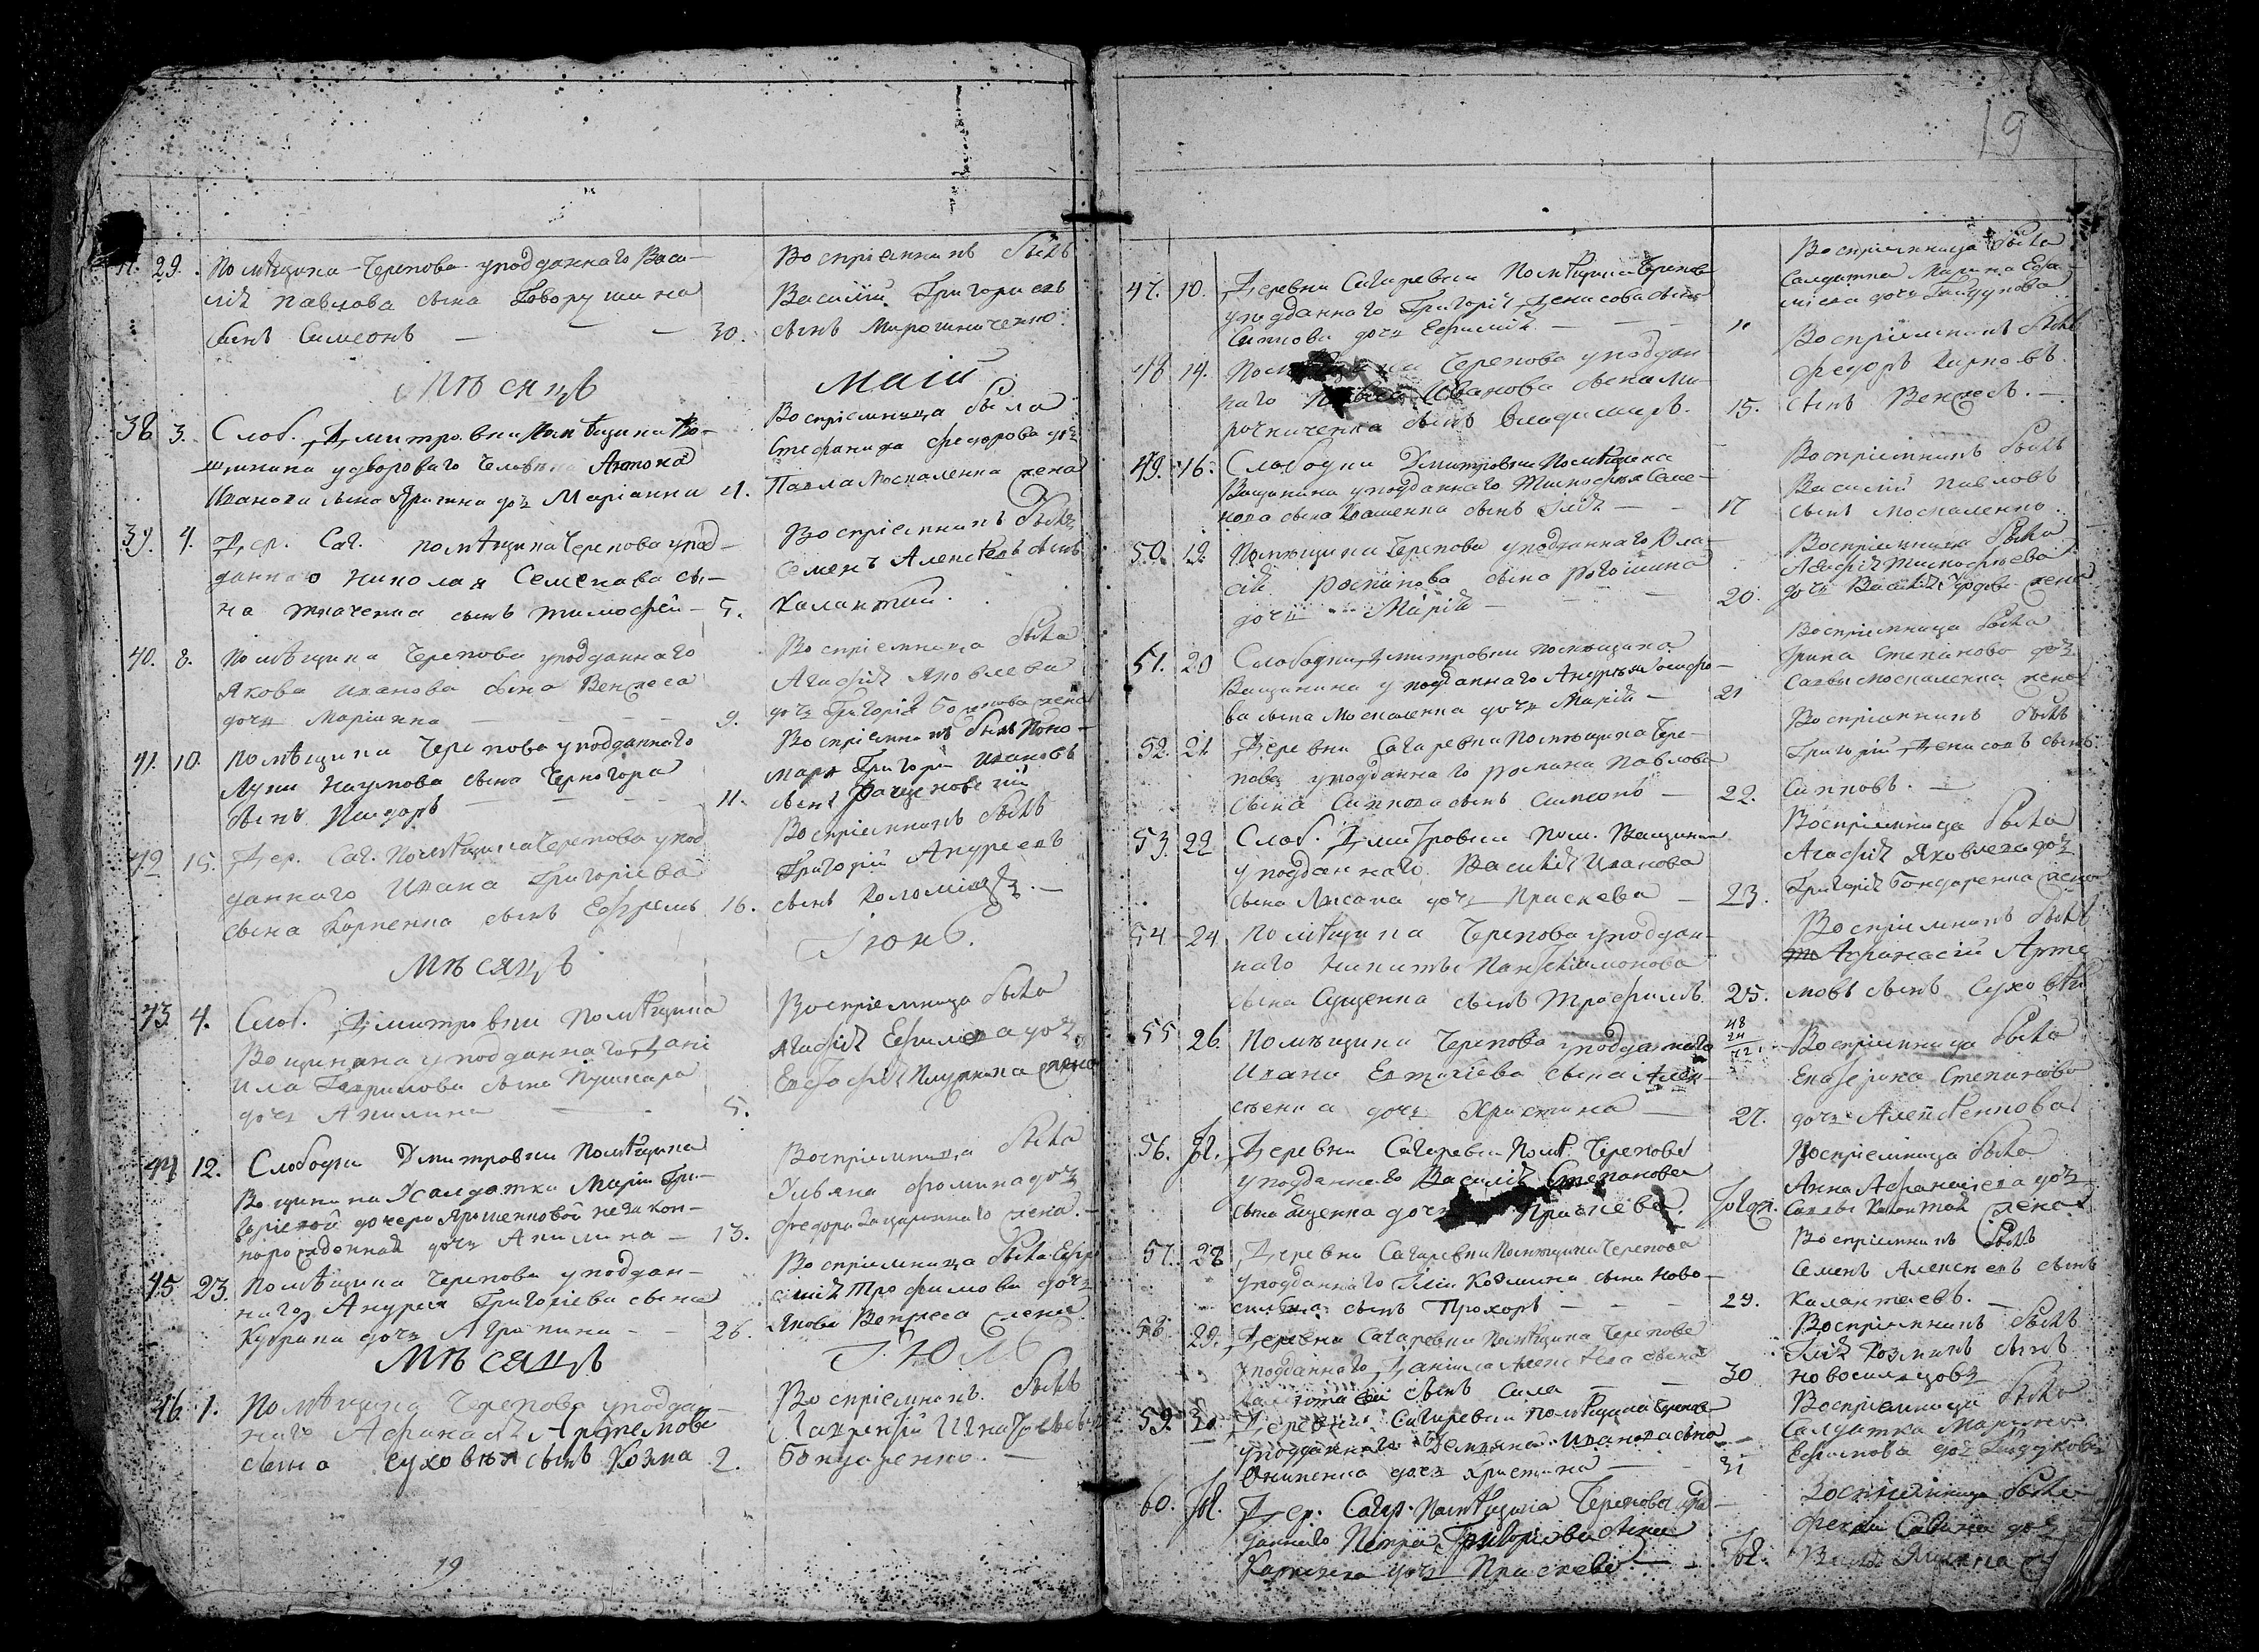 19
29. Помѣщика Черепова уподданнаго Васи-
лія Павлова сына Говорушина
сынъ Симеонъ 30.
Воспріемникъ былъ
Василій Григоріевъ
сынъ Мирошниченко.
Мѣсяцъ Маій
38 3. Слоб. Дмитровки Помѣщика
удвороваго человѣка Антона
Иванова сына дочь Маріанна 4.
Воспріемница была
Стефанида Федорова дочь
Павла Москаленка жена
39. 4. Дер. Саг. помѣщика Черепова упод-
даннаго Николая Семенова сы-
на Ткаченка сынъ Тимофей 5.
Воспріемникъ былъ
Семенъ Алексѣевъ сынъ
Калантай.
40. 8. Помѣщика Черепова уподданнаго
Якова Иванова сына Венжеса
дочь Маріанна 9.
Воспріемница была
Агафія Яковлева
дочь Григорія жена
41. 10. Помѣщика Черепова уподданнаго
Луки Наумова сына Черногора
сынъ Исидоръ 11.
Воспріемникъ былъ Поно-
марь Григорій Ивановъ
сынъ
42 15. Дер. Саг. Помѣщика Черепова упод
даннаго Ивана Григоріева
сына Карпенка сынъ Ефремъ 16.
Воспріемникъ былъ
Григорій Андреевъ
сынъ Коломіецъ.
Мѣсяцъ Іюнь.
43. 4. Слоб. Дмитровки Помѣщика
Вощинина уподданнаго Дані
ила Гаврилова сына Пушкара
дочь Акилина 5.
Воспріемница была
Агафія Ефимова дочь
жена
44 12. Слободки Дмитровки Помѣщика
Вощинина Усалдатки Маріи Гри-
горіевой дочери Ярошенковой незакон-
норожденная дочь Акилина 13.
Воспріемница была
Ульяна Фомина дочь
Федора жена.
45 23. Помѣщика Черепова уподдан-
наго Андрея Григоріева сына
Кубрака дочь Агрипина 26.
Воспріемница была Евфи
мія Трофимова дочь
Якова Венжеса жена
Мѣсяцъ Іюль
46. 1. Помѣщика Черепова уподдан-
наго Афанасія Артемова
сына Суховѣя сынъ Козма 2.
Воспріемникъ былъ
Лаврентій Игнатьевъ
Бондаренко.
19
47. 10. Деревни Сагаревки Помѣщика Черепова
уподданнаго Григорія Денисова сына
Ситнова дочь Евфимія 11
Воспріемница была
Салдатка Марина Ефи
міева дочь Гайдукова
48 14. Помѣщика Черепова уподдан
наго Иванова сына Ми-
рошниченка сынъ Владимиръ. 15.
Воспріемникъ былъ
Федоръ Карповъ
сынъ Венжесъ.
49. 16. Слободки Дмитровки Помѣщика
Вощинина уподданнаго Тимофея Семе-
нова сына сынъ Илія 17
Воспріемникъ былъ
Василій Павловъ
сынъ Москаленко.
50. 19 Помѣщика Черепова уподданнаго Вла-
сія сына
дочь Марія 20.
Воспріемница была
Агафія Тимофеева
дочь Василія жена
51. 20 Слободки Дмитровки помѣщика
Вощинина уподданнаго Андрея
ва сына Москаленка дочь Марія 21
Воспріемница была
Ирина Степанова дочь
Саввы Москаленка жена
52. 21 Деревни Сагаревки Помѣщика Чере-
пова уподданнаго Романа Павлова
сына Ситнова сынъ Симеонъ 22.
Воспріемникъ былъ
Григорій Денисовъ сынъ
Ситновъ.
53. 22 Слоб. Дмитровки Пом. Вощинина
уподданнаго Василія Иванова
сына Лисака дочь Праскева 23.
Воспріемница была
Агафія Яковлева дочь
Григорія Бондаренка жена
54 24 Помѣщика Черепова уподдан-
наго Никиты Пантелимонова
сына Сущенка сынъ Трофимъ 25.
Воспріемникъ былъ
Афанасій Арте
мовъ сынъ Суховѣй
55 26 Помѣщика Черепова уподданнаго
Ивана Евтихіева сына Алек-
сѣенка дочь Христина 27.
48
24
72
Воспріемница была
Екатерина Степанова
дочь Алексѣенкова
56. Деревни Сагаревки Помѣ. Черепова
уподданнаго Василія Степанова
сына дочь Праскева.
Воспріемница была
Анна Афанасіева дочь
Саввы Калантая жена
57. 28 Деревни Сагаревки Помѣщика Черепова
уподданнаго Иліи Козмина сына Ново-
сынъ Прохоръ 29.
Воспріемникъ былъ
Семенъ Алексѣевъ сынъ
Калантаевъ.
58 29. Деревни Сагаревки Помѣщика Черепова
уподданнаго Даніила Алексѣева сына
сынъ Сила 30
Воспріемникъ былъ
Илія Козминъ сынъ
Новосильцовъ
59. 30. Деревни Сагаревки помѣщика Черепова
уподданнаго Демьяна Иванова сына
Онипенка дочь Христина 31
Воспріемница была
Салдатка Марина
Ефимова дочь Гайдукова
60. Дер. Сагар. Помѣщика Черепова упод
даннаго Петра Григоріева сына
Карпенка дочь Праскева
Воспріемница была
Савина дочь